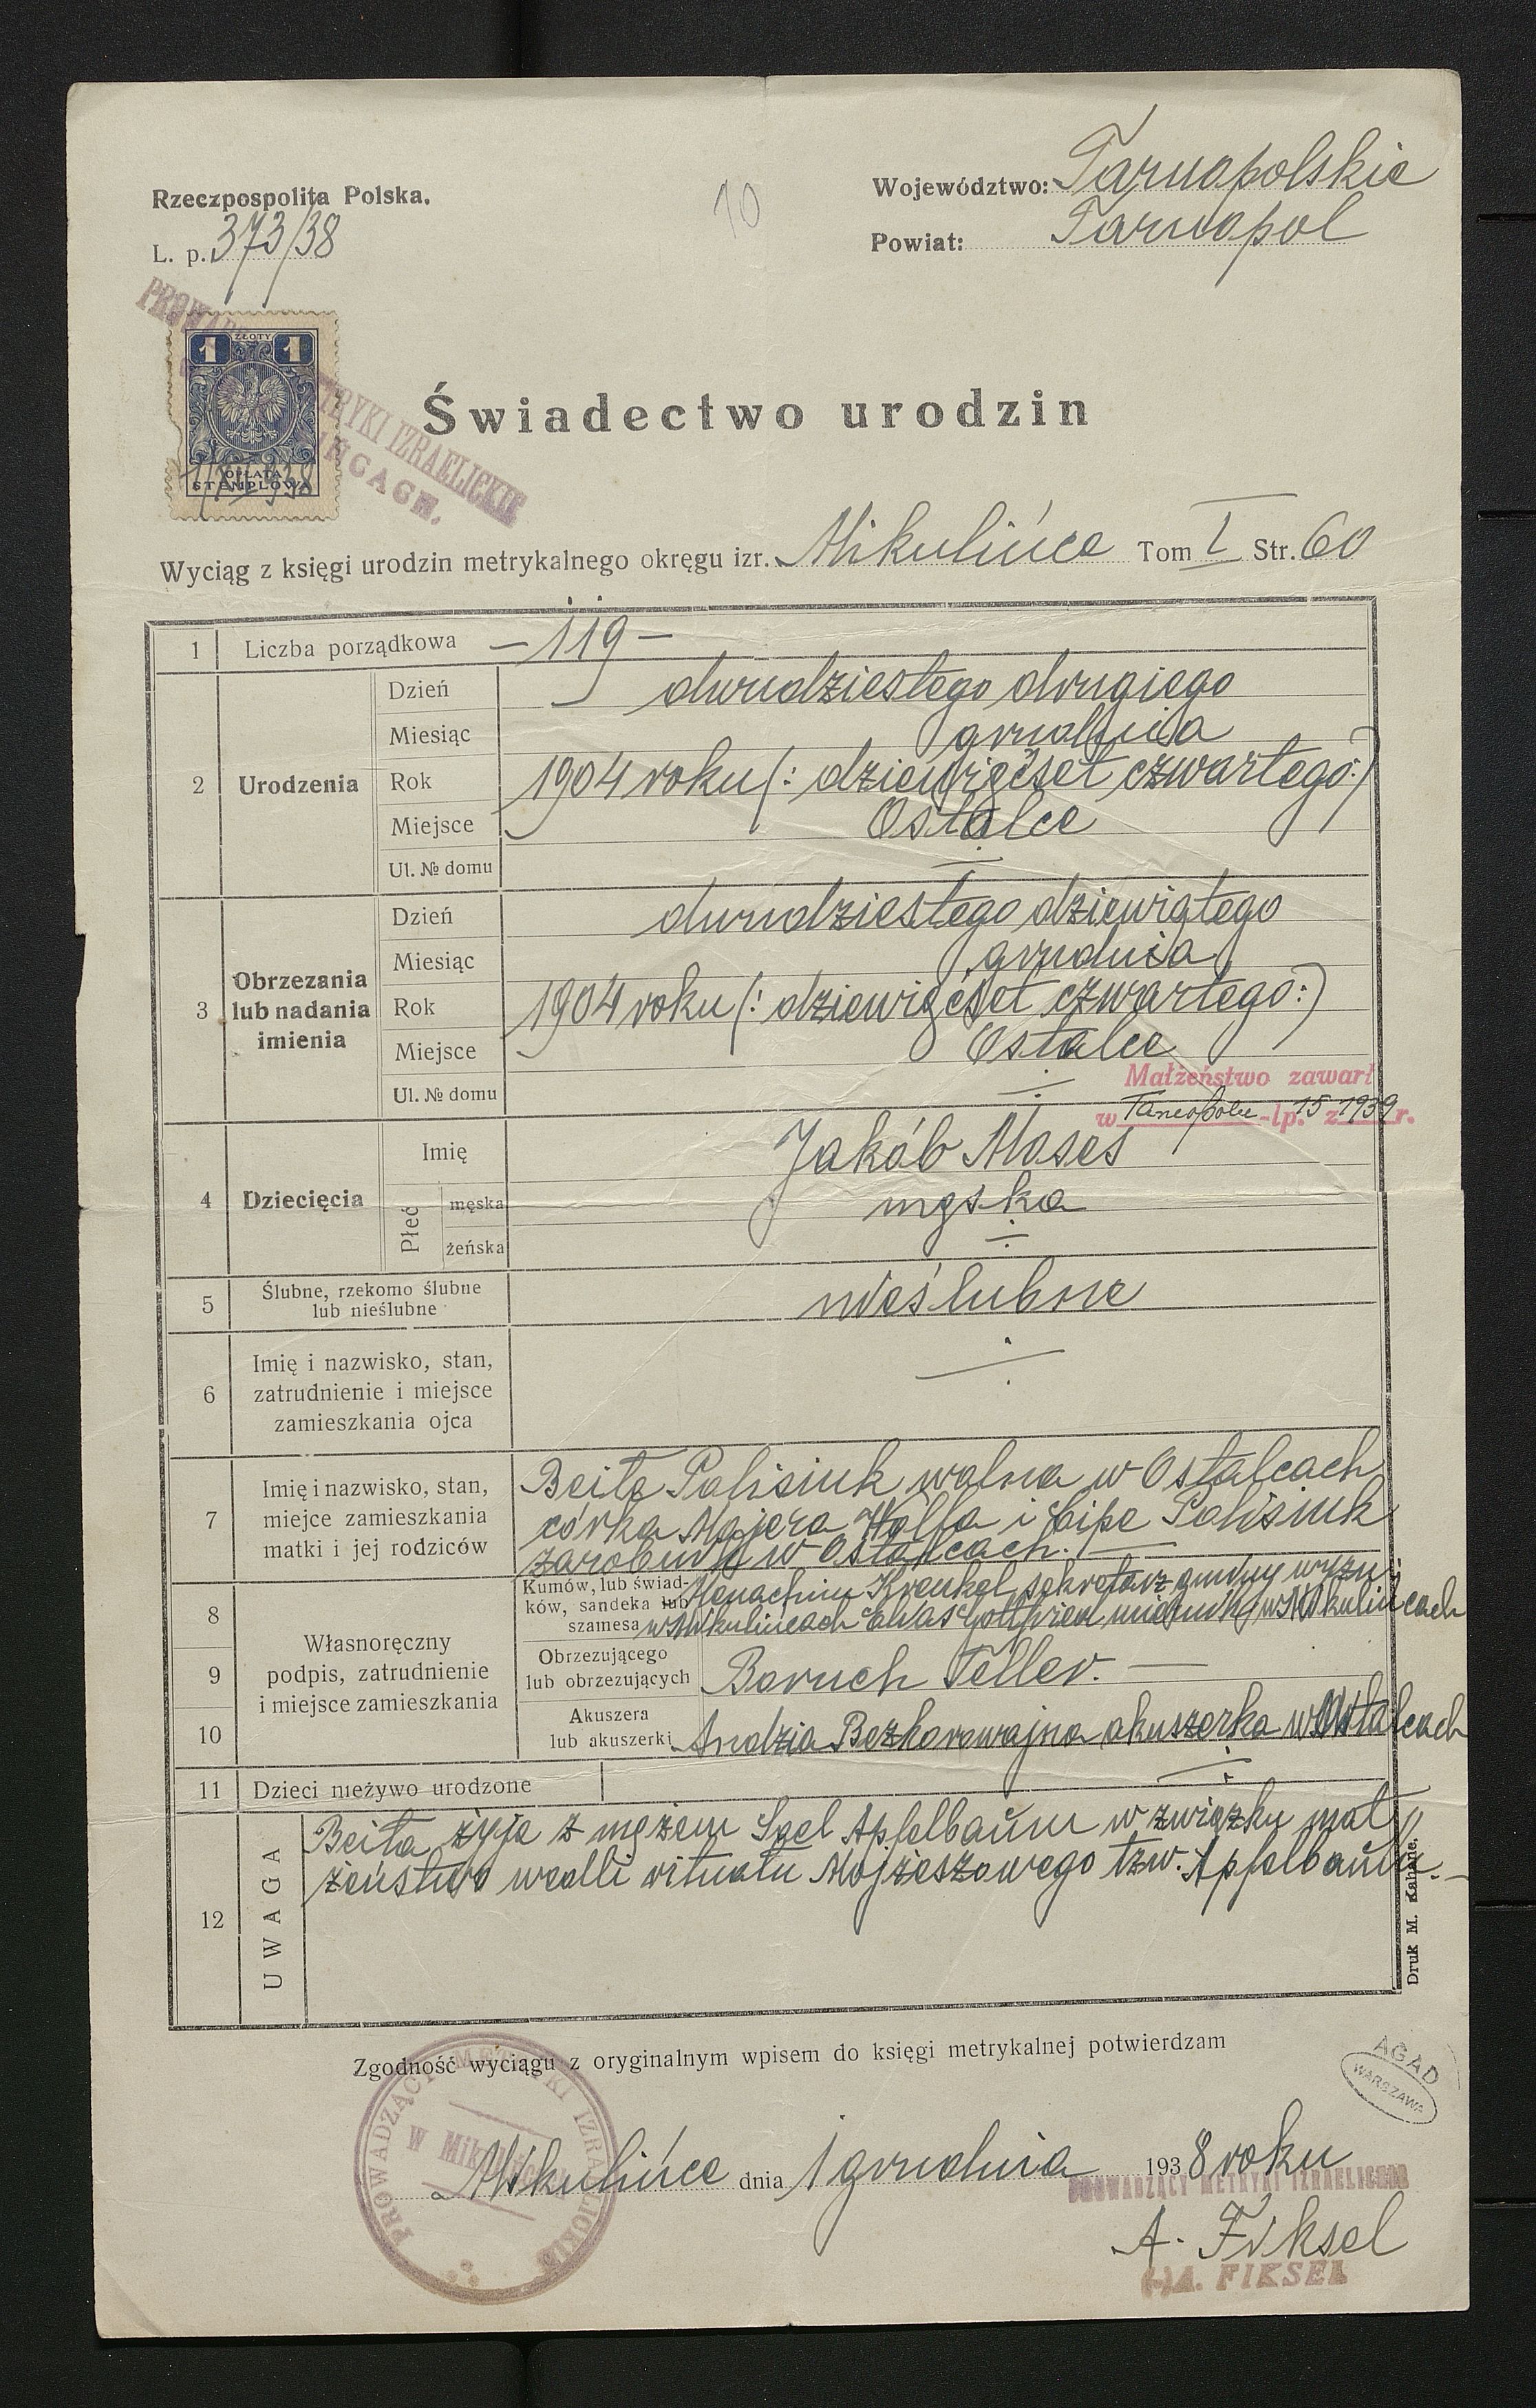 Rzeczpospolita Polska.
L. p. 373/38
10
Województwo: Tarnopolskie
Powiat: Tarnopol
1 ZŁOTY 1
OPŁATA
STEMPLOWA
1/XII 938
METRYKI IZRAELICKIE
Świadectwo urodzin
Wyciąg z księgi urodzin metrykalnego okręgu izr. Mikulińce Tom I Str. 60
1 Liczba porządkowa – 119 –
2 Urodzenia
Dzień dwudziestego drugiego
Miesiąc grudnia
Rok 1904 roku (: dziewięćset czwartego :)
Miejsce Ostalce
Ul. № domu
3 Obrzezania
lub nadania
imienia
Dzień dwudziestego dziewiątego
Miesiąc grudnia
Rok 1904 roku (: dziewięćset czwartego :)
Miejsce Ostalce
Ul. № domu
Małżeństwo zawarł
w Tarnopolu lp. 15 z 1939 r.
4 Dziecięcia
Imię Jakób Moses
Płeć
męska męska
żeńska
5 Ślubne, rzekomo ślubne
lub nieślubne
nieślubne
6 Imię i nazwisko, stan,
zatrudnienie i miejsce
zamieszkania ojca
7 Imię i nazwisko, stan,
miejce zamieszkania
matki i jej rodziców
Beila Palisiuk wolna w Ostalcach
córka Majera Wolfa i Cipe Palisiuk
w Ostalcach.
8 Własnoręczny
podpis, zatrudnienie
i miejsce zamieszkania
Kumów, lub świad-
ków, sandeka lub
szamesa
Menachim Kronkel sekretarz gminy wyzn.
w Mikulińcach Elias w Mikulińcach
9 Obrzezującego
lub obrzezujących
Baruch Teller. –
10 Akuszera
lub akuszerki
Andzia Bezkorowajna akuszerka w Ostalcach
11 Dzieci nieżywo urodzone
12 UWAGA
Beila żyje z mężem Apfelbaum w związku mał
żeństwo wedle rituału Mojżeszowego tzw. Apfelbaum. –
Druk M. Kahane.
Zgodność wyciągu z oryginalnym wpisem do księgi metrykalnej potwierdzam
PROWADZĄCY METRYKI IZRAELICKIE
W Mikulińcach
AGAD
WARSZAWA
Mikulińce dnia 1 grudnia 1938 roku
PROWADZĄCY METRYKI IZRAELICKIE
A. Fiksel
(-) A. FIKSEL